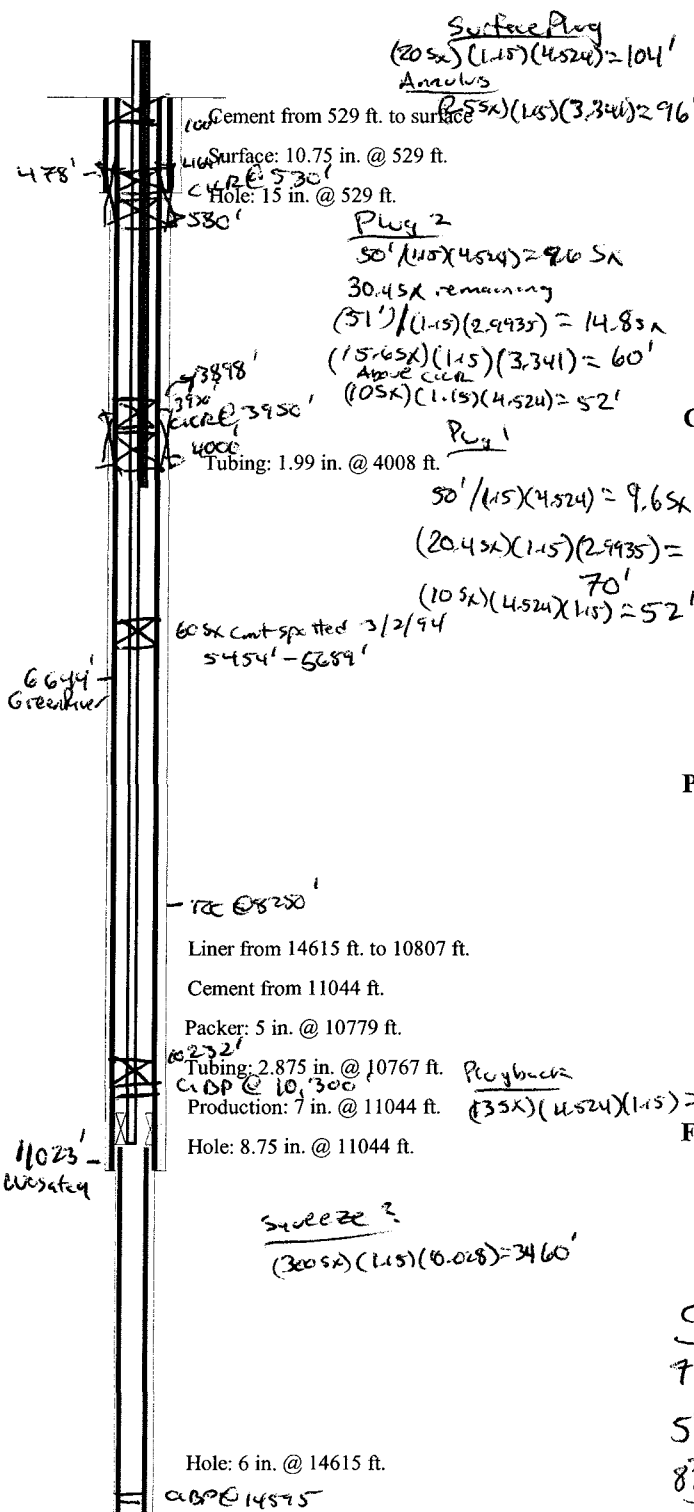 Surface Plug
(20 sx)(1.15)(4.524)=104'
Annulus
(25sx)(1.15)(3.341)=96'
100'
Cement from 529 ft. to surface
Surface: 10.75 in. @ 529 ft.
478'
CICR @ 530'
Hole: 15 in. @ 529 ft.
530'
Plug 2
50'/(1.15)(4.524)=9.6 sx
30.4sx remaining
(51')/(1.15)(2.9935) = 14.8sx
(15.6sx)(1.15)(3.341) = 60'
Above CICR
(10sx)(1.15)(4.524)=52'
3898'
3950'
CICR @ 3950'
4000
Tubing: 1.99 in. @ 4008 ft.
Plug 1
50'/(1.15)(4.524) = 9.6sx
(20.4sx)(1.15)(2.9935) =
70'
(10 sx)(4.524)(1.15)=52'
60 sx cmt spotted 3/2/94
5454'-5689'
6644'
Green River
TOC @ 8250'
Liner from 14615 ft. to 10807 ft.
Cement from 11044 ft.
Packer: 5 in. @ 10779 ft.
10232'
Tubing: 2.875 in. @ 10767 ft.
CIBP @ 10,300'
Plugback
(13sx)(4.524)(1.15)=
Production: 7 in. @ 11044 ft.
Hole: 8.75 in. @ 11044 ft.
11023'
Wasatch
Squeeze ?
(300sx)(1.15)(10.028)=3460'
Hole: 6 in. @ 14615 ft.
CIBP @ 14595